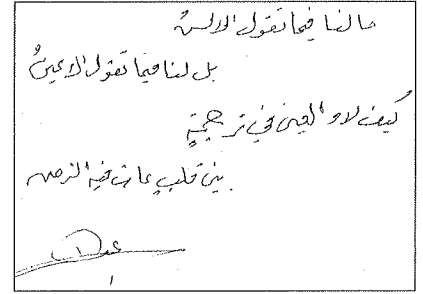 ما لنا فيما تقول الألسنُ
بل لنا فيما تقول الاعينُ
كيف لا و العين في ترجمةٍ
بين قلبٍ عاث فيه الزمن